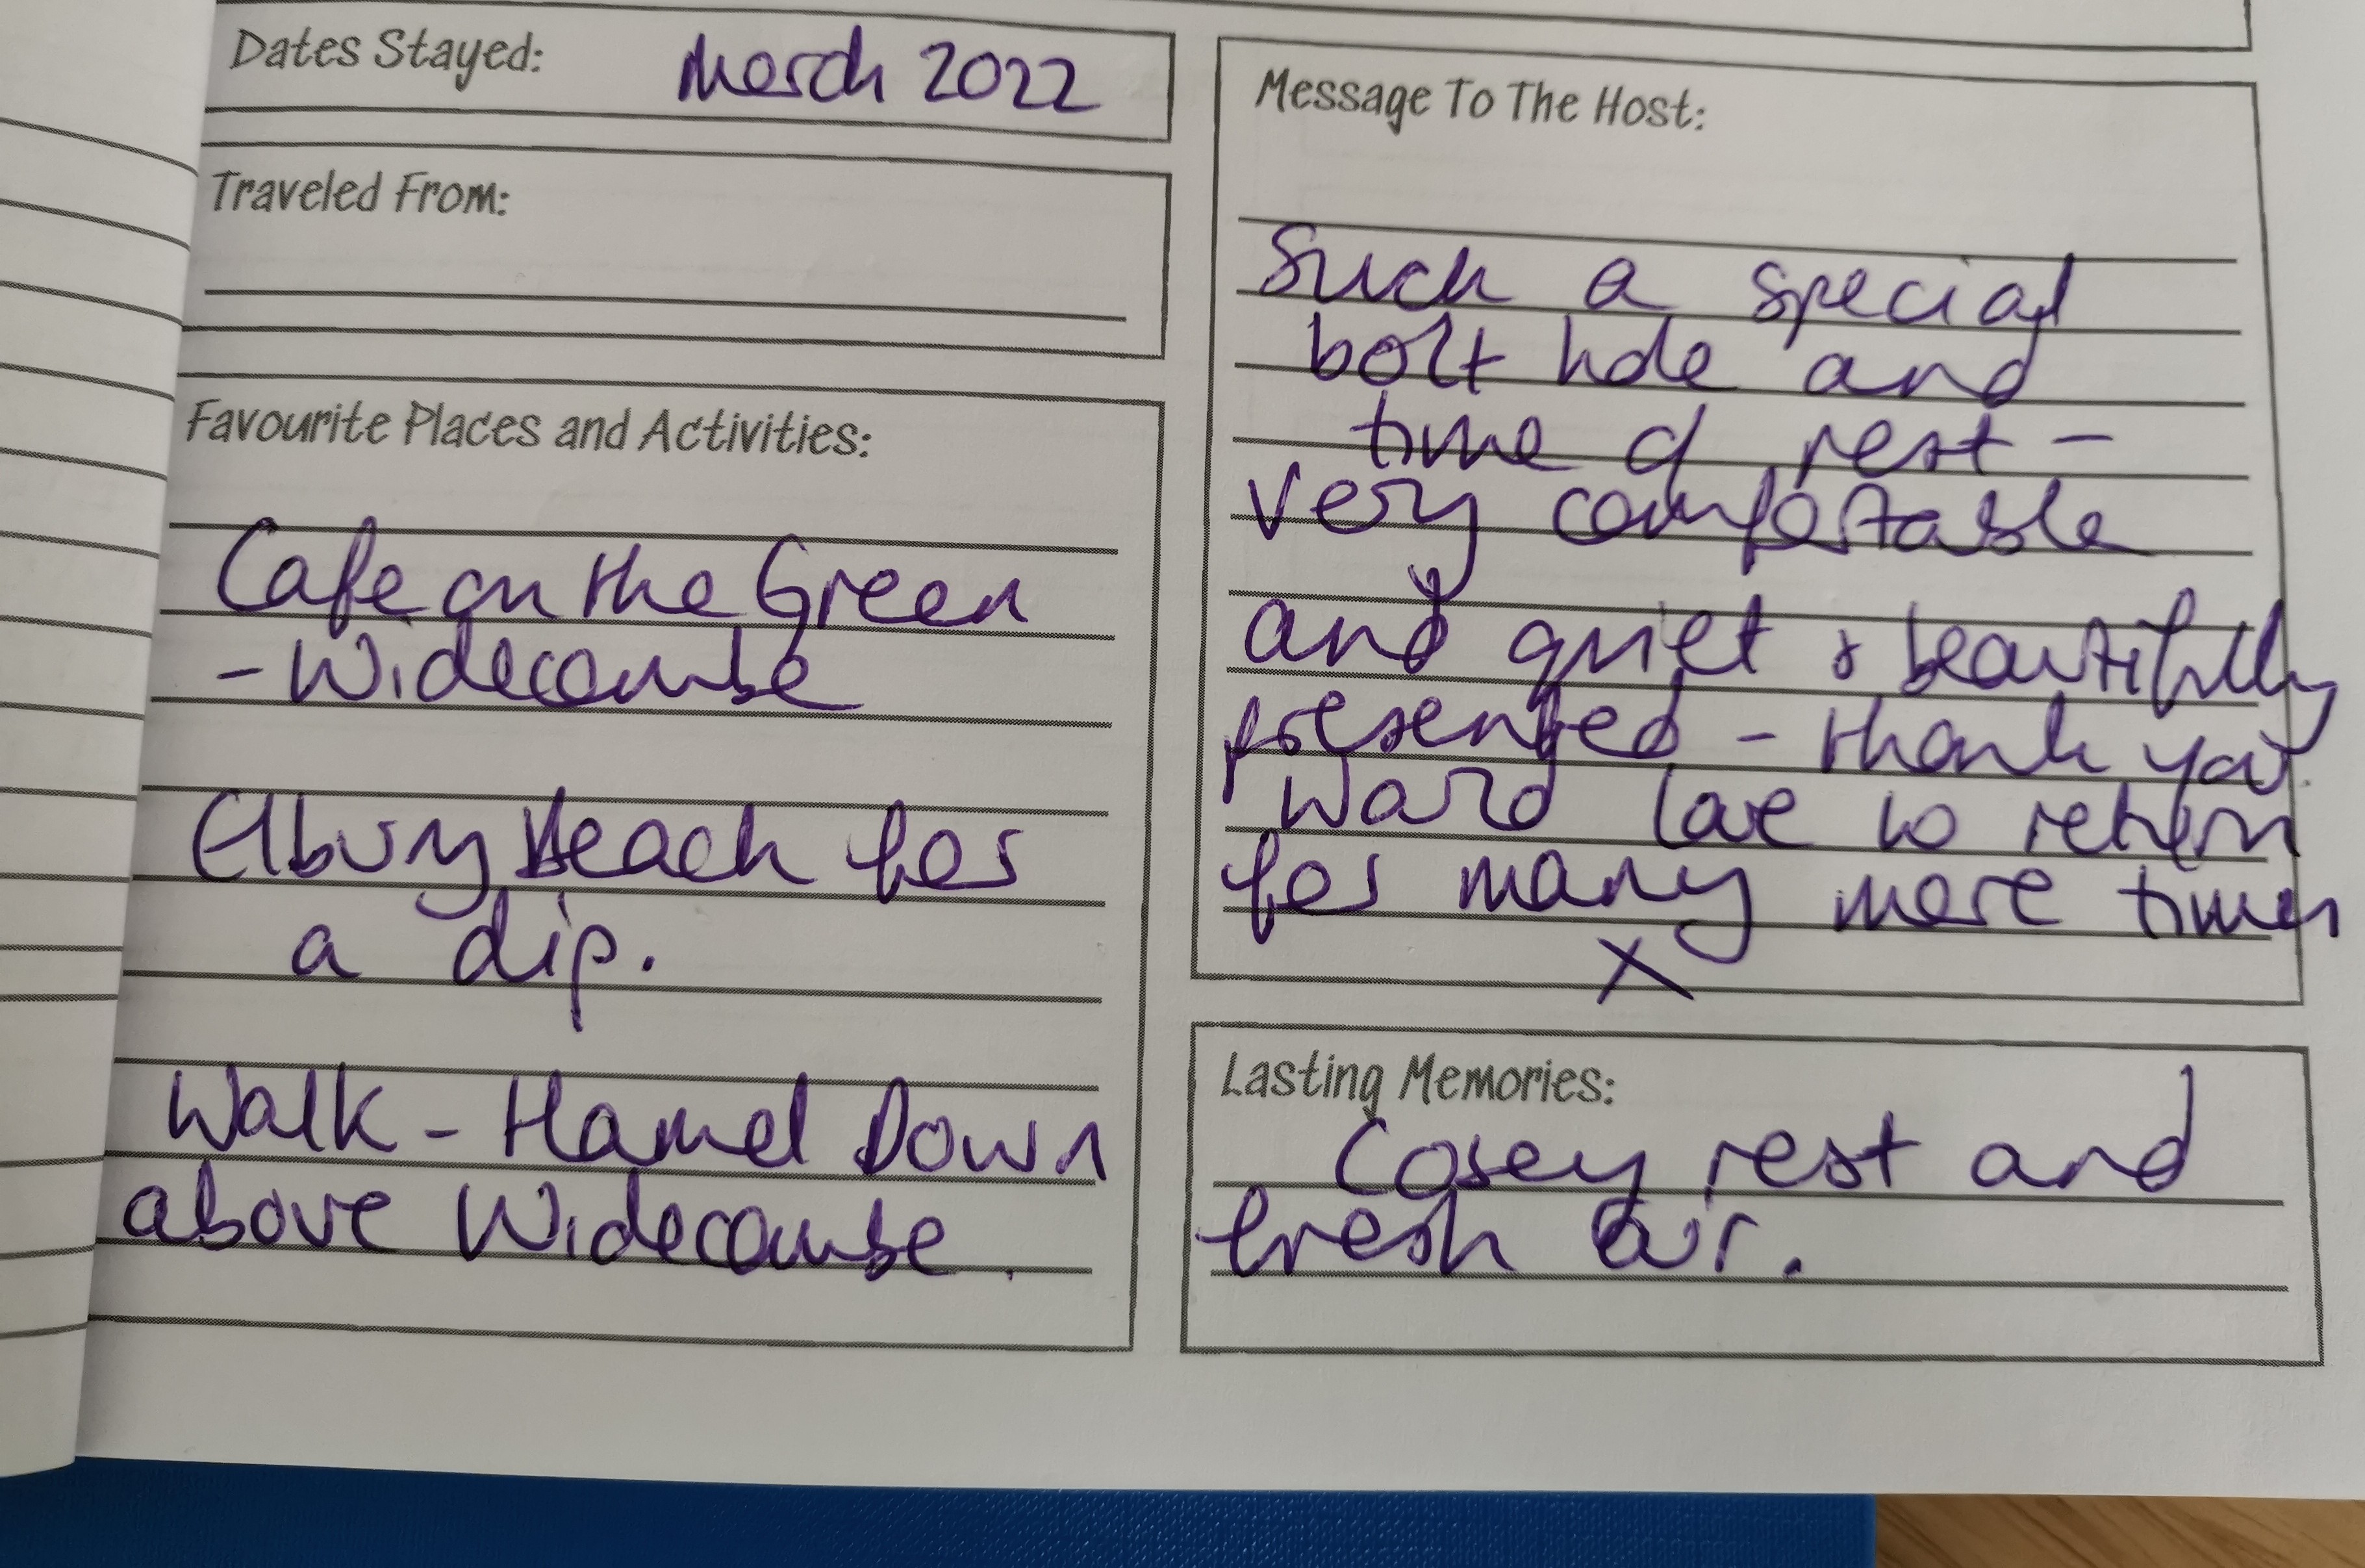 Dates Stayed: March 2022
Traveled From:
Favourite Places and Activities:
Cafe on the Green
- Widecombe
Elbury Beach for
a dip.
Walk - Hamel Down
above Widecombe.
Message To The Host:
Such a special
bolt hole and
time of rest -
very comfortable
and quiet & beautifully
presented - thank you.
Would love to return
for many more times
X
Lasting Memories:
Cosey rest and
fresh air.